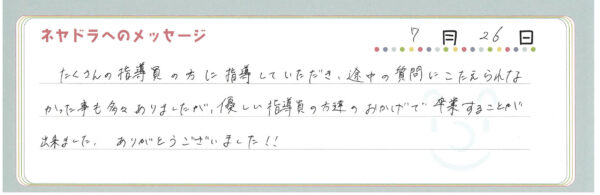 ネヤドラへのメッセージ 7月26日
たくさんの指導員の方に指導していただき、途中の質問にこたえられな
かった事も多々ありましたが、優しい指導員の方達のおかげで卒業することが
出来ました。ありがとうございました!!